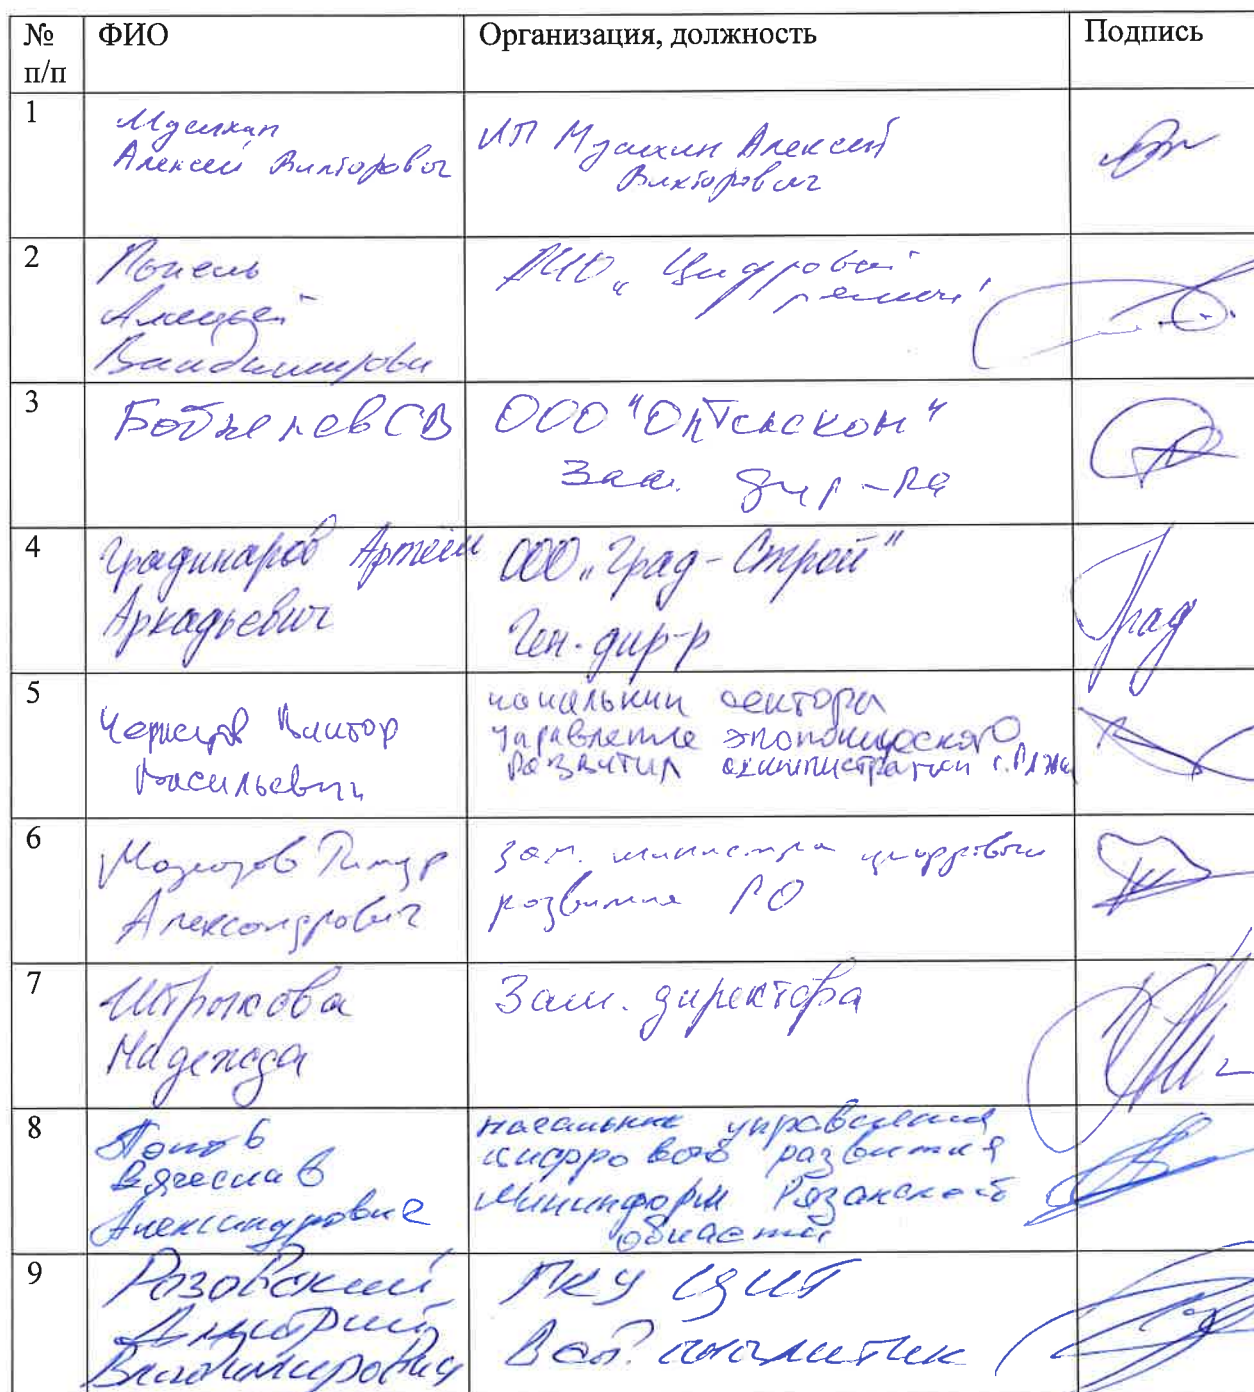 № п/п
ФИО
Организация, должность
Подпись
1
Алексей Викторович
ИП Алексей
Викторович
2
Алексей
Владимирови
АНО „Цифровой
регион"
3
СВ
ООО "Оптелеком"
Зам. дир-ра
4
Градинаров Артем
Аркадьевич
ООО „Град-Строй"
Ген. дир-р
Град
5
Виктор
Васильевич
начальник сектора
управление экономического
развития администрации г.
6
Тимур
Александрович
зам. министра цифрового
развития РО
7
Штрыкова
Надежда
Зам. директора
8
Попов
Вячеслав
Александрович
начальник управления
цифрового развития
Мининформ Рязанской
области
9
Розовский
Дмитрий
Владимирович
ГКУ ЦИТ
Вед. аналитик